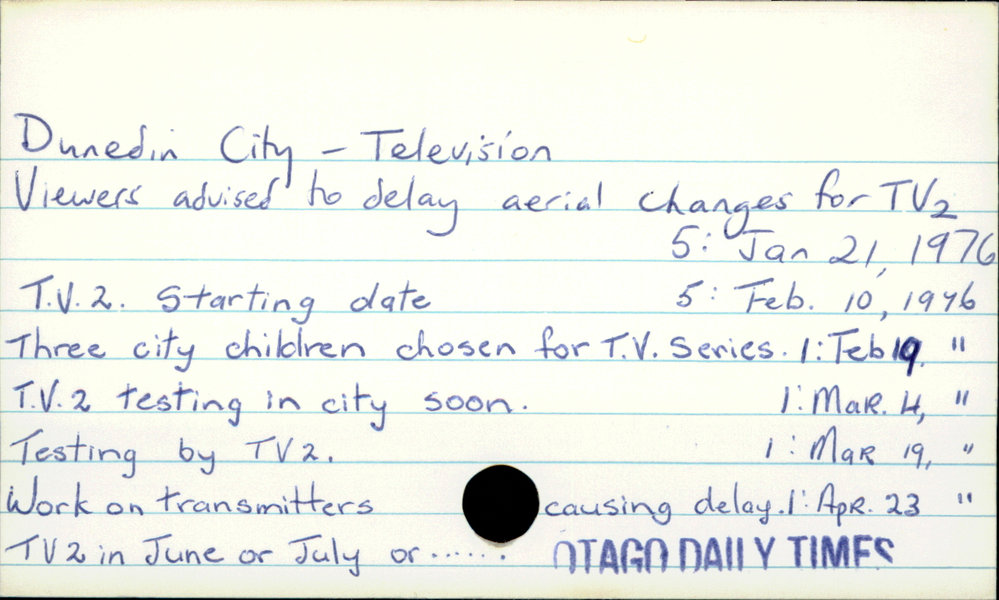 Dunedin City – Television
Viewers advised to delay aerial changes for TV2
5: Jan 21, 1976
T.V. 2. Starting date 5: Feb. 10, 1976
Three city children chosen for T.V. Series. 1: Feb 19. "
T.V. 2 testing in city soon. 1: Mar. 4, "
Testing by TV 2. 1: Mar 19, "
Work on transmitters causing delay. 1: Apr. 23 "
TV 2 in June or July or ...... OTAGO DAILY TIMES